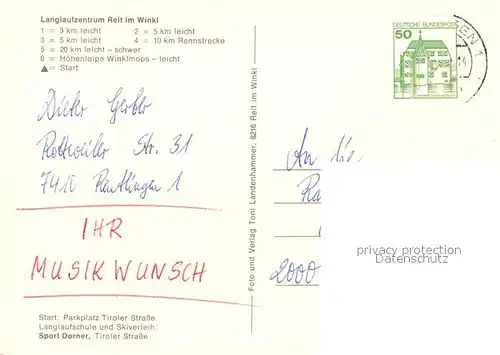 Langlaufzentrum Reit im Winkl
1 = 3 km leicht 2 = 5 km leicht
3 = 5 km leicht 4 = 10 km Rennstrecke
5 = 20 km leicht - schwer
6 = Höhenloipe Winklmoos - leicht
▲ = Start
DEUTSCHE BUNDESPOST
50
Dieter Gerber
Rottweiler Str. 31
7410 Reutlingen 1
IHR
MUSIKWUNSCH
Start: Parkplatz Tiroler Straße
Langlaufschule und Skiverleih:
Sport Dorner, Tiroler Straße
Foto und Verlag Toni Landenhammer, 8216 Reit im Winkl
An
2000
privacy protection
Datenschutz